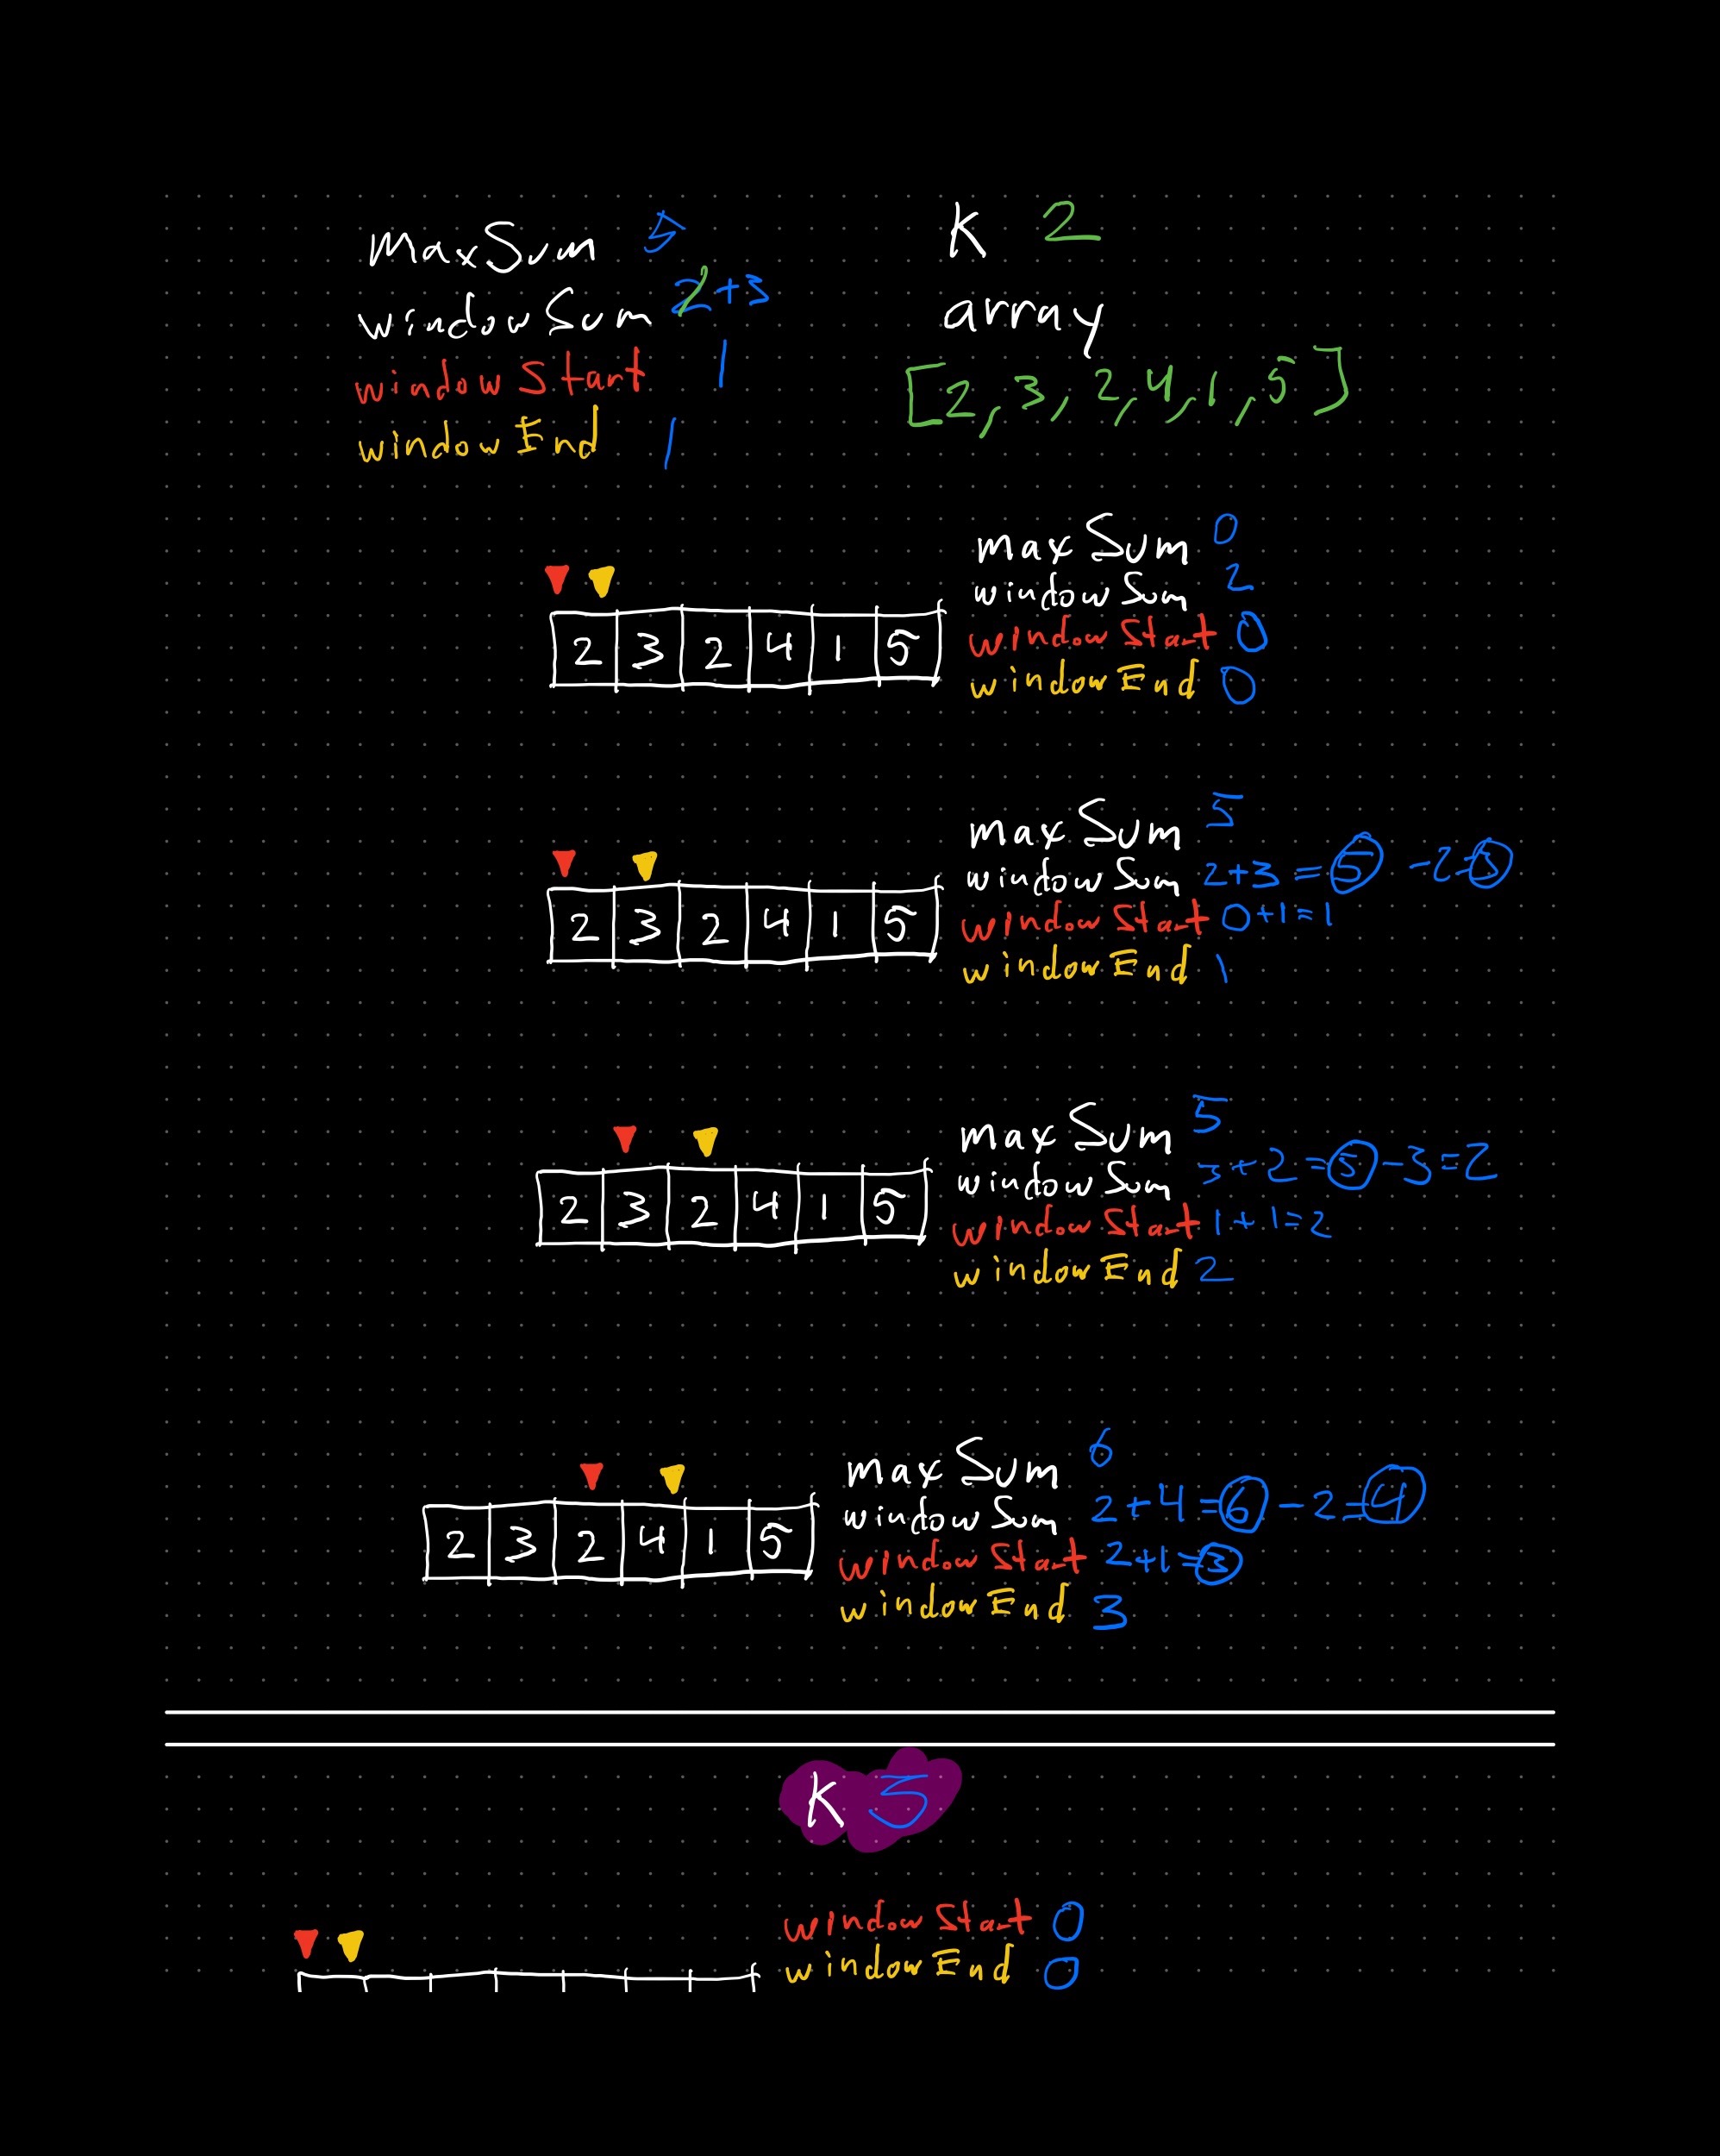 maxSum 5
windowSum 2+3
windowStart 1
windowEnd 1
K 2
array
[2, 3, 2, 4, 1, 5]
maxSum 0
windowSum 2
windowStart 0
windowEnd 0
2 3 2 4 1 5
maxSum 5
windowSum 2+3 = 5 - 2 = 3
windowStart 0+1=1
windowEnd 1
2 3 2 4 1 5
maxSum 5
windowSum 3+2=5-3=2
windowStart 1+1=2
windowEnd 2
2 3 2 4 1 5
maxSum 6
windowSum 2+4=6-2=4
windowStart 2+1=3
windowEnd 3
2 3 2 4 1 5
K
windowStart 0
windowEnd 0